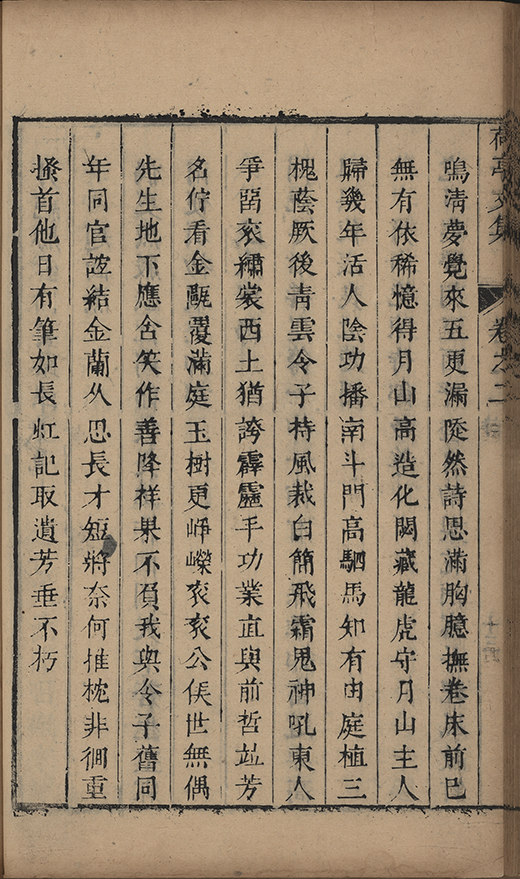 荷亭文集 卷之二
鳴清夢覺來五更漏陡然詩思滿胸臆撫卷床前巳
無有依稀憶得月山高造化閟藏龍虎守月山主人
歸幾年活人陰功播南斗門高駟馬知有由庭植三
槐蔭厥後青雲令子持風裁白簡飛霜鬼神吼東人
爭留衮繡裳西土猶誇霹靂手功業宜與前哲並芳
名佇看金甌覆滿庭玉樹更崢嶸衮衮公侯世無偶
先生地下應含笑作善降祥果不負我與令子舊同
年同官誼結金蘭久思長才短將奈何推枕非徊重
搔首他日有筆如長虹記取遺芳垂不朽